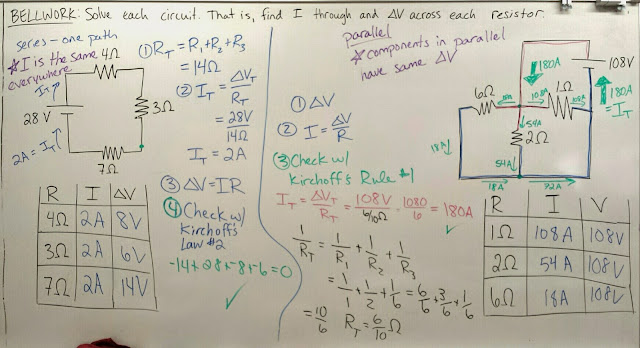 BELLWORK: Solve each circuit. That is, find I through and ΔV across each resistor.
series - one path
* I is the same everywhere
4Ω
I_T
3Ω
28 V
2A = I_T
7Ω
① R_T = R_1 + R_2 + R_3
= 14Ω
② I_T = ΔV_T / R_T
= 28V / 14Ω
I_T = 2A
③ ΔV = IR
④ Check w/
Kirchoff's
Law #2
-14 + 28 + -8 + -6 = 0
✓
R I ΔV
4Ω 2A 8V
3Ω 2A 6V
7Ω 2A 14V
parallel
* components in parallel
have same ΔV
① ΔV
② I = ΔV / R
③ Check w/
Kirchoff's Rule #1
I_T = ΔV_T / R_T = 108V / 6/10Ω · 1080 / 6 = 180A
✓
1/R_T = 1/R_1 + 1/R_2 + 1/R_3
= 1/1 + 1/2 + 1/6 = 6/6 + 3/6 + 1/6
= 10/6 R_T = 6/10 Ω
180A
108V
180A
= I_T
6Ω
18A
108A
1Ω
108A
54A
2Ω
18A
54A
18A
R I V
1Ω 108A 108V
2Ω 54A 108V
6Ω 18A 108V